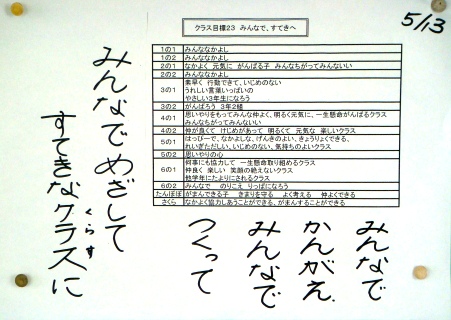 5/13
クラス目標23 みんなで、すてきへ
1の1 みんななかよし
1の2 みんななかよし
2の1 なかよく 元気に がんばる子 みんなちがってみんないい
2の2 みんななかよし
3の1 素早く 行動できて、いじめのない
うれしい言葉いっぱいの
やさしい3年生になろう
3の2 がんばろう 3年2組
4の1 思いやりをもってみんな仲よく、明るく元気に、一生懸命がんばるクラス
みんなちがってみんないい
4の2 仲が良くて けじめがあって 明るくて 元気な 楽しいクラス
5の1 はっぴーで、なかよしな、げんきのよい、きょうりょくできる、
れいぎただしい、いじめのない、気持ちのよいクラス
5の2 思いやりの心
6の1 何事にも協力して 一生懸命取り組めるクラス
仲良く 楽しい 笑顔の絶えないクラス
他学年にたよりにされるクラス
6の2 みんなで のりこえ りっぱになろう
たんぽぽ がまんできる子 きまりを守る よく考える 仲よくできる
さくら なかよく協力しあうことができる、がまんすることができる
みんなで
かんがえ、
みんなで
つくって
みんなでめざして
すてきなクラスに
くらす